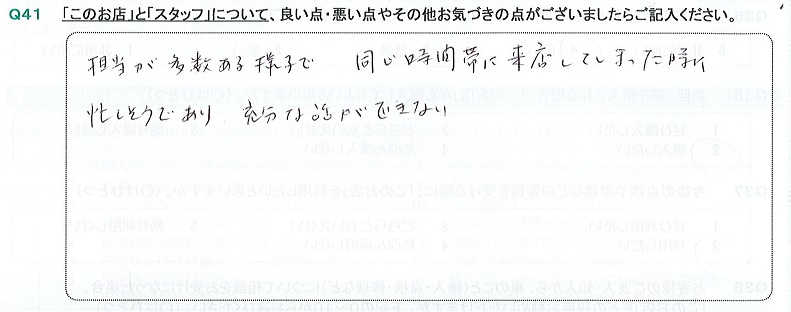 Q41 「このお店」と「スタッフ」について、良い点・悪い点やその他お気づきの点がございましたらご記入ください。
担当が多数ある様子で 同じ時間帯に来店してしまった時に
忙しそうであり 充分な話ができない